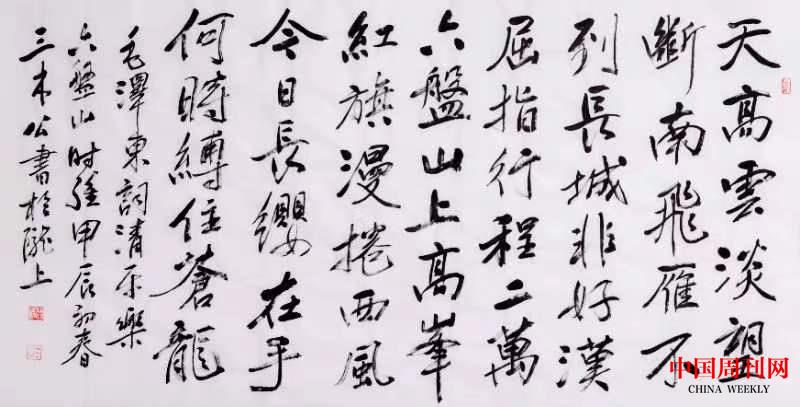 天高雲淡望
斷南飛雁不
到長城非好漢
屈指行程二萬
六盤山上高峯
紅旗漫捲西風
今日長纓在手
何時縛住蒼龍
毛澤東詞清平樂
六盤山时在甲辰初春
三木公書於隴上
中国周刊网
CHINA WEEKLY